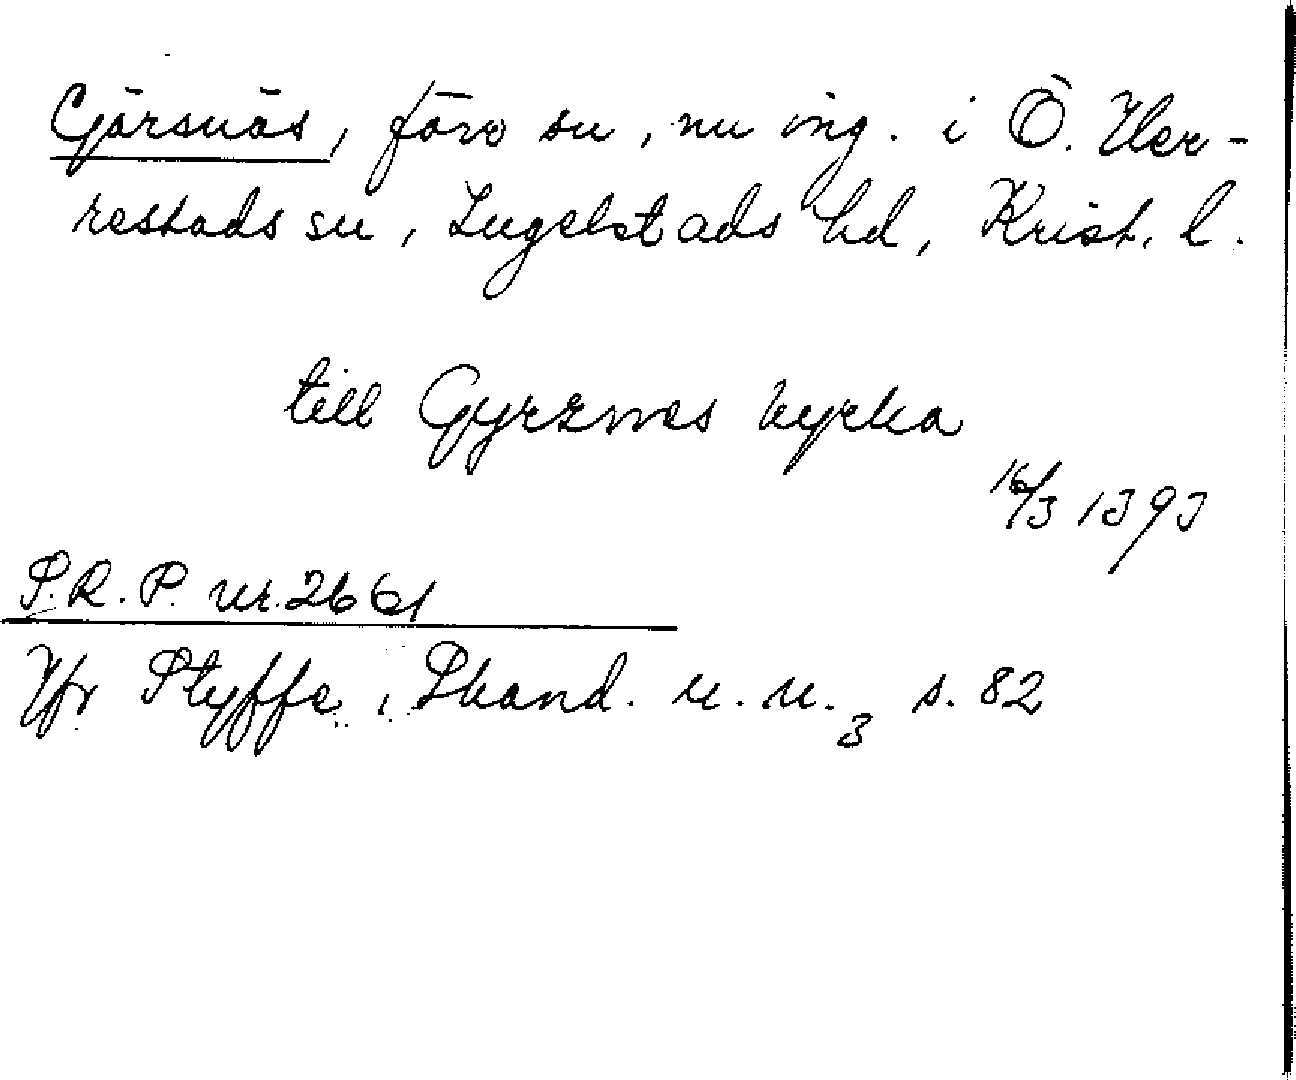 Gärsnäs, förr sn, nu ing. i Ö. Her-
restads sn, Ingelstads hd, Krist. l.
till Gyrznes kyrka
16/3 1393
S.R.P. nr. 2661
Jfr Styffe, Skand. u. u. 3 s. 82